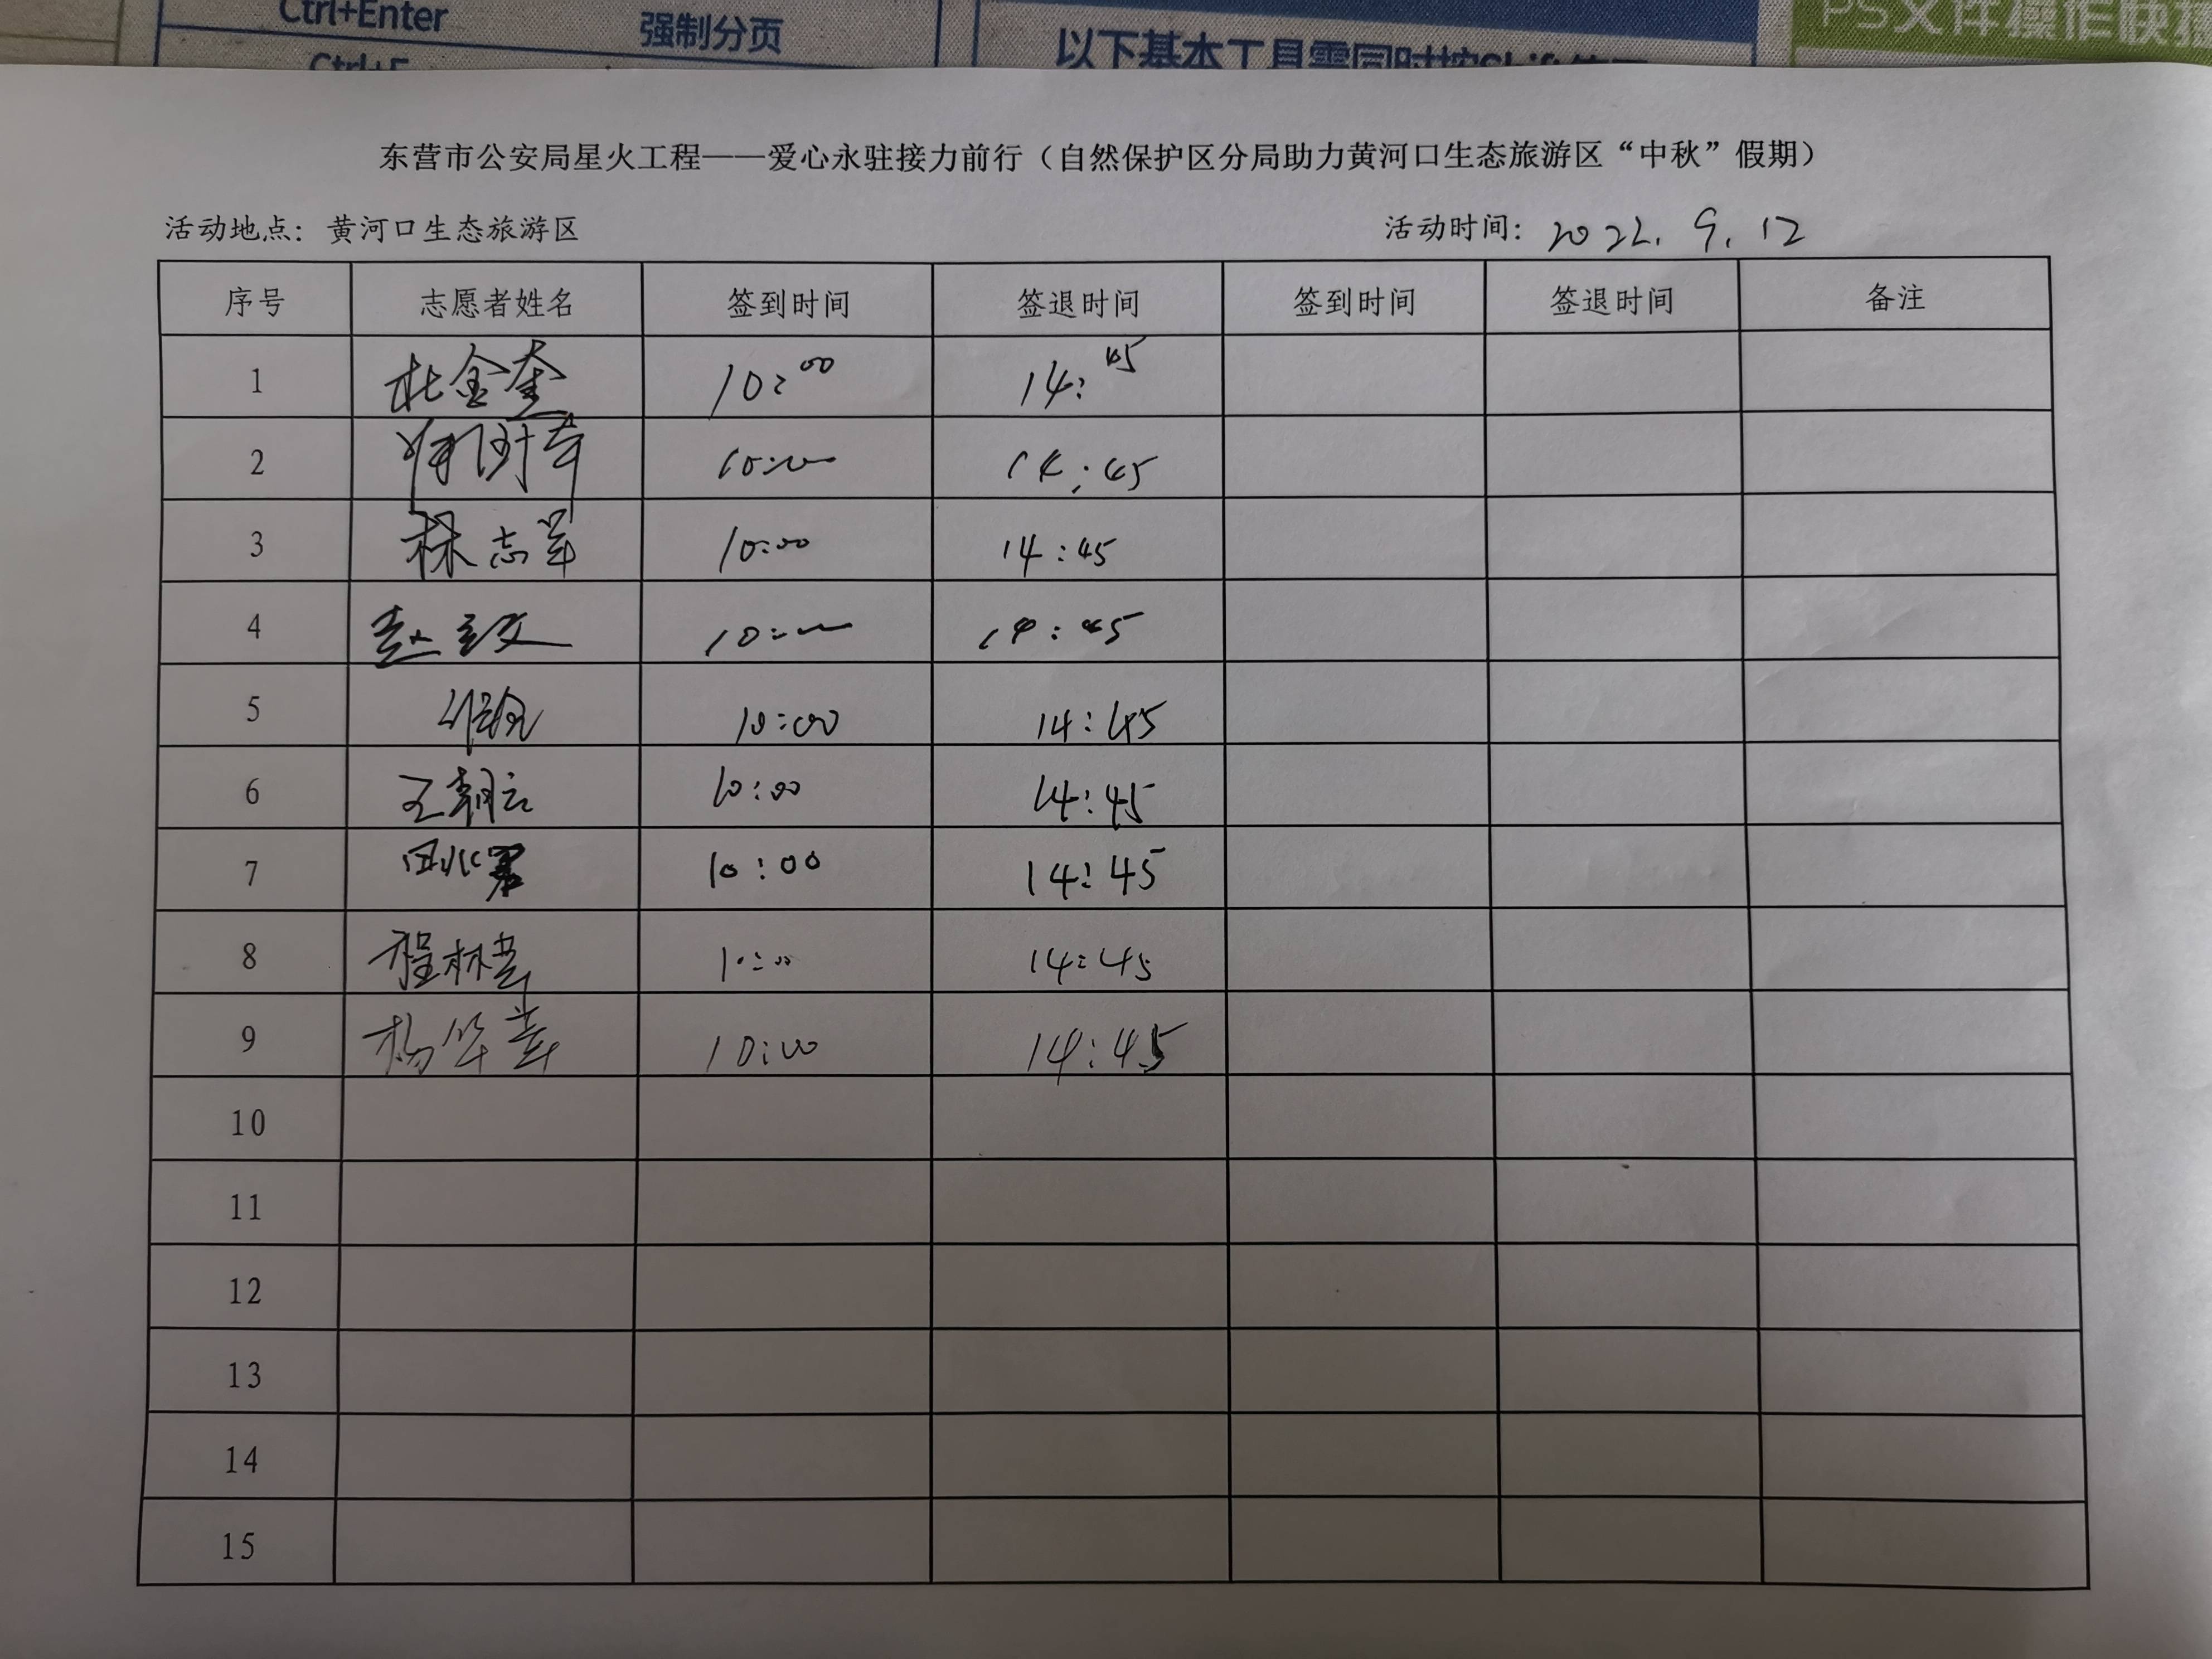 Ctrl+Enter 强制分页
以下基本工具需同时按Shift
PS文件操作快捷
东营市公安局星火工程——爱心永驻接力前行（自然保护区分局助力黄河口生态旅游区“中秋”假期）
活动地点：黄河口生态旅游区 活动时间：2022.9.12
序号 志愿者姓名 签到时间 签退时间 签到时间 签退时间 备注
1 杜金奎 10:00 14:45
2 10:00 14:45
3 林志军 10:00 14:45
4 10:00 14:45
5 10:00 14:45
6 王朝云 10:00 14:45
7 10:00 14:45
8 10:00 14:45
9 10:00 14:45
10
11
12
13
14
15